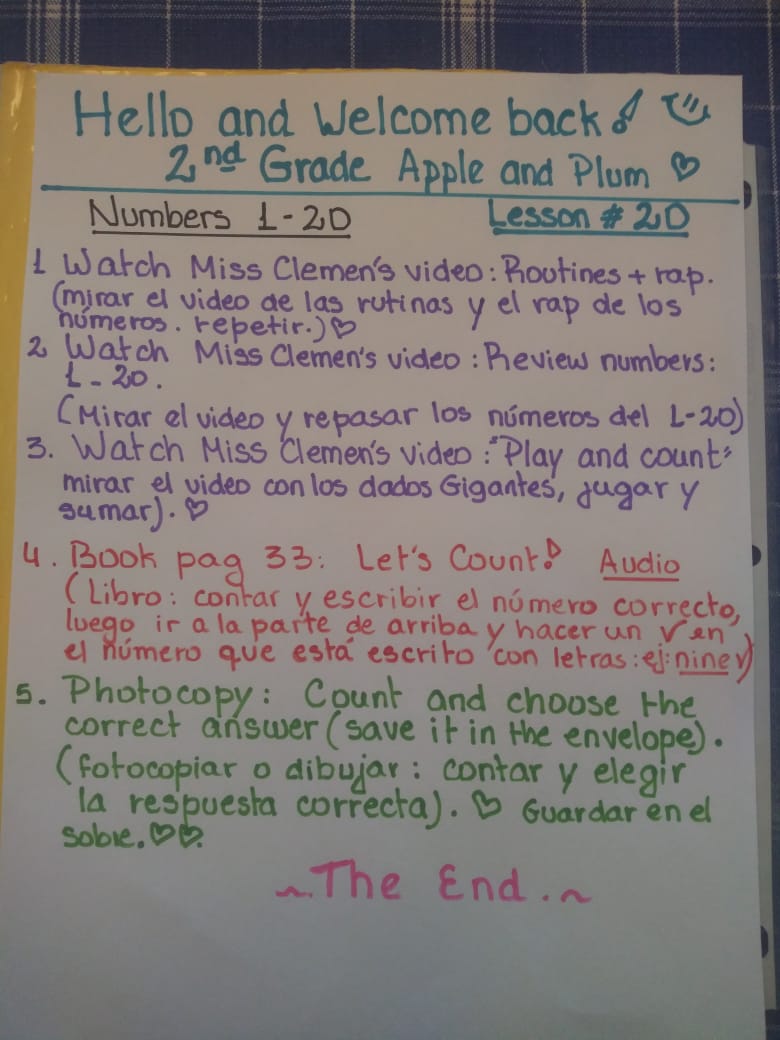 Hello and Welcome back!
2nd Grade Apple and Plum
Numbers 1-20 Lesson # 20
1 Watch Miss Clemen's video: Routines + rap.
(mirar el video de las rutinas y el rap de los
números. repetir.)
2 Watch Miss Clemen's video: Review numbers:
1-20.
(Mirar el video y repasar los números del 1-20)
3. Watch Miss Clemen's video: "Play and count"
mirar el video con los dados Gigantes, jugar y
sumar).
4. Book pag 33: Let's Count! Audio
(Libro: contar y escribir el número correcto,
luego ir a la parte de arriba y hacer un √ en
el número que está escrito con letras: ej: nine √)
5. Photocopy: Count and choose the
correct answer (save it in the envelope).
(fotocopiar o dibujar: contar y elegir
la respuesta correcta). Guardar en el
sobre.
~.The End.~